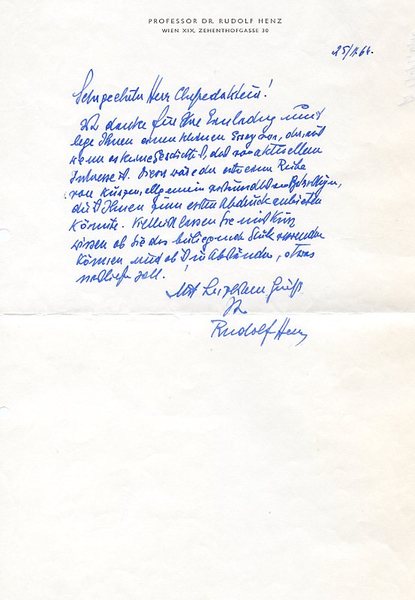 PROFESSOR DR. RUDOLF HENZ
WIEN XIX, ZEHENTHOFGASSE 30
Sehr geehrter Herr Chefredakteur!
Ich danke für Ihre Einladung und
lege Ihnen einen kleinen Essay vor, der, auch
wenn er keine Geschichte ist, doch von aktuellem
Interesse ist. Dieser wäre der erste einer Reihe
von kurzen, allgemein Beiträgen,
die ich Ihnen zum ersten Abdruck anbieten
könnte. Vielleicht lassen Sie mich kurz
wissen ob Sie das beiliegende Stück verwenden
können und ob ich in Abständen, etwas
nachliefern soll!
Mit herzlichem Gruß
Ihr
Rudolf Henz